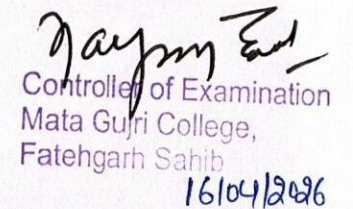 Controller of Examination
Mata Gujri College,
Fatehgarh Sahib
16/04/2026